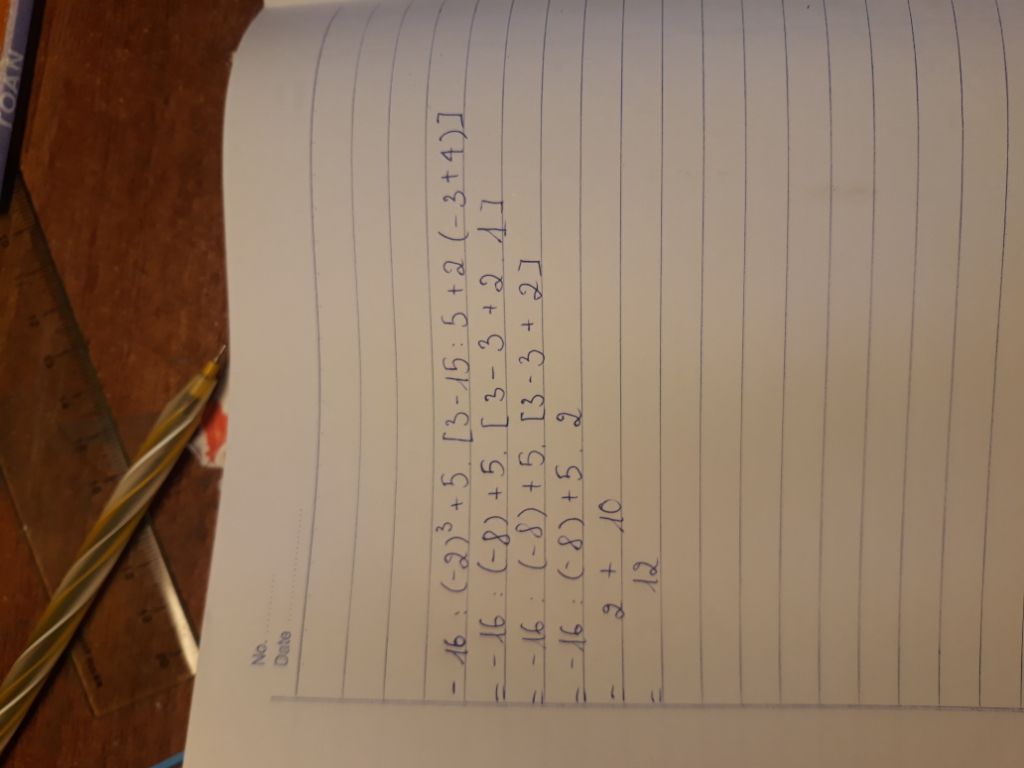 TOÁN
No. ............
Date ....................
- 16 : (-2)³ + 5. [3 - 15 : 5 + 2 (-3 + 4)]
= - 16 : (-8) + 5. [3 - 3 + 2 . 1]
= - 16 : (-8) + 5. [3 - 3 + 2]
= - 16 : (-8) + 5 . 2
= 2 + 10
= 12